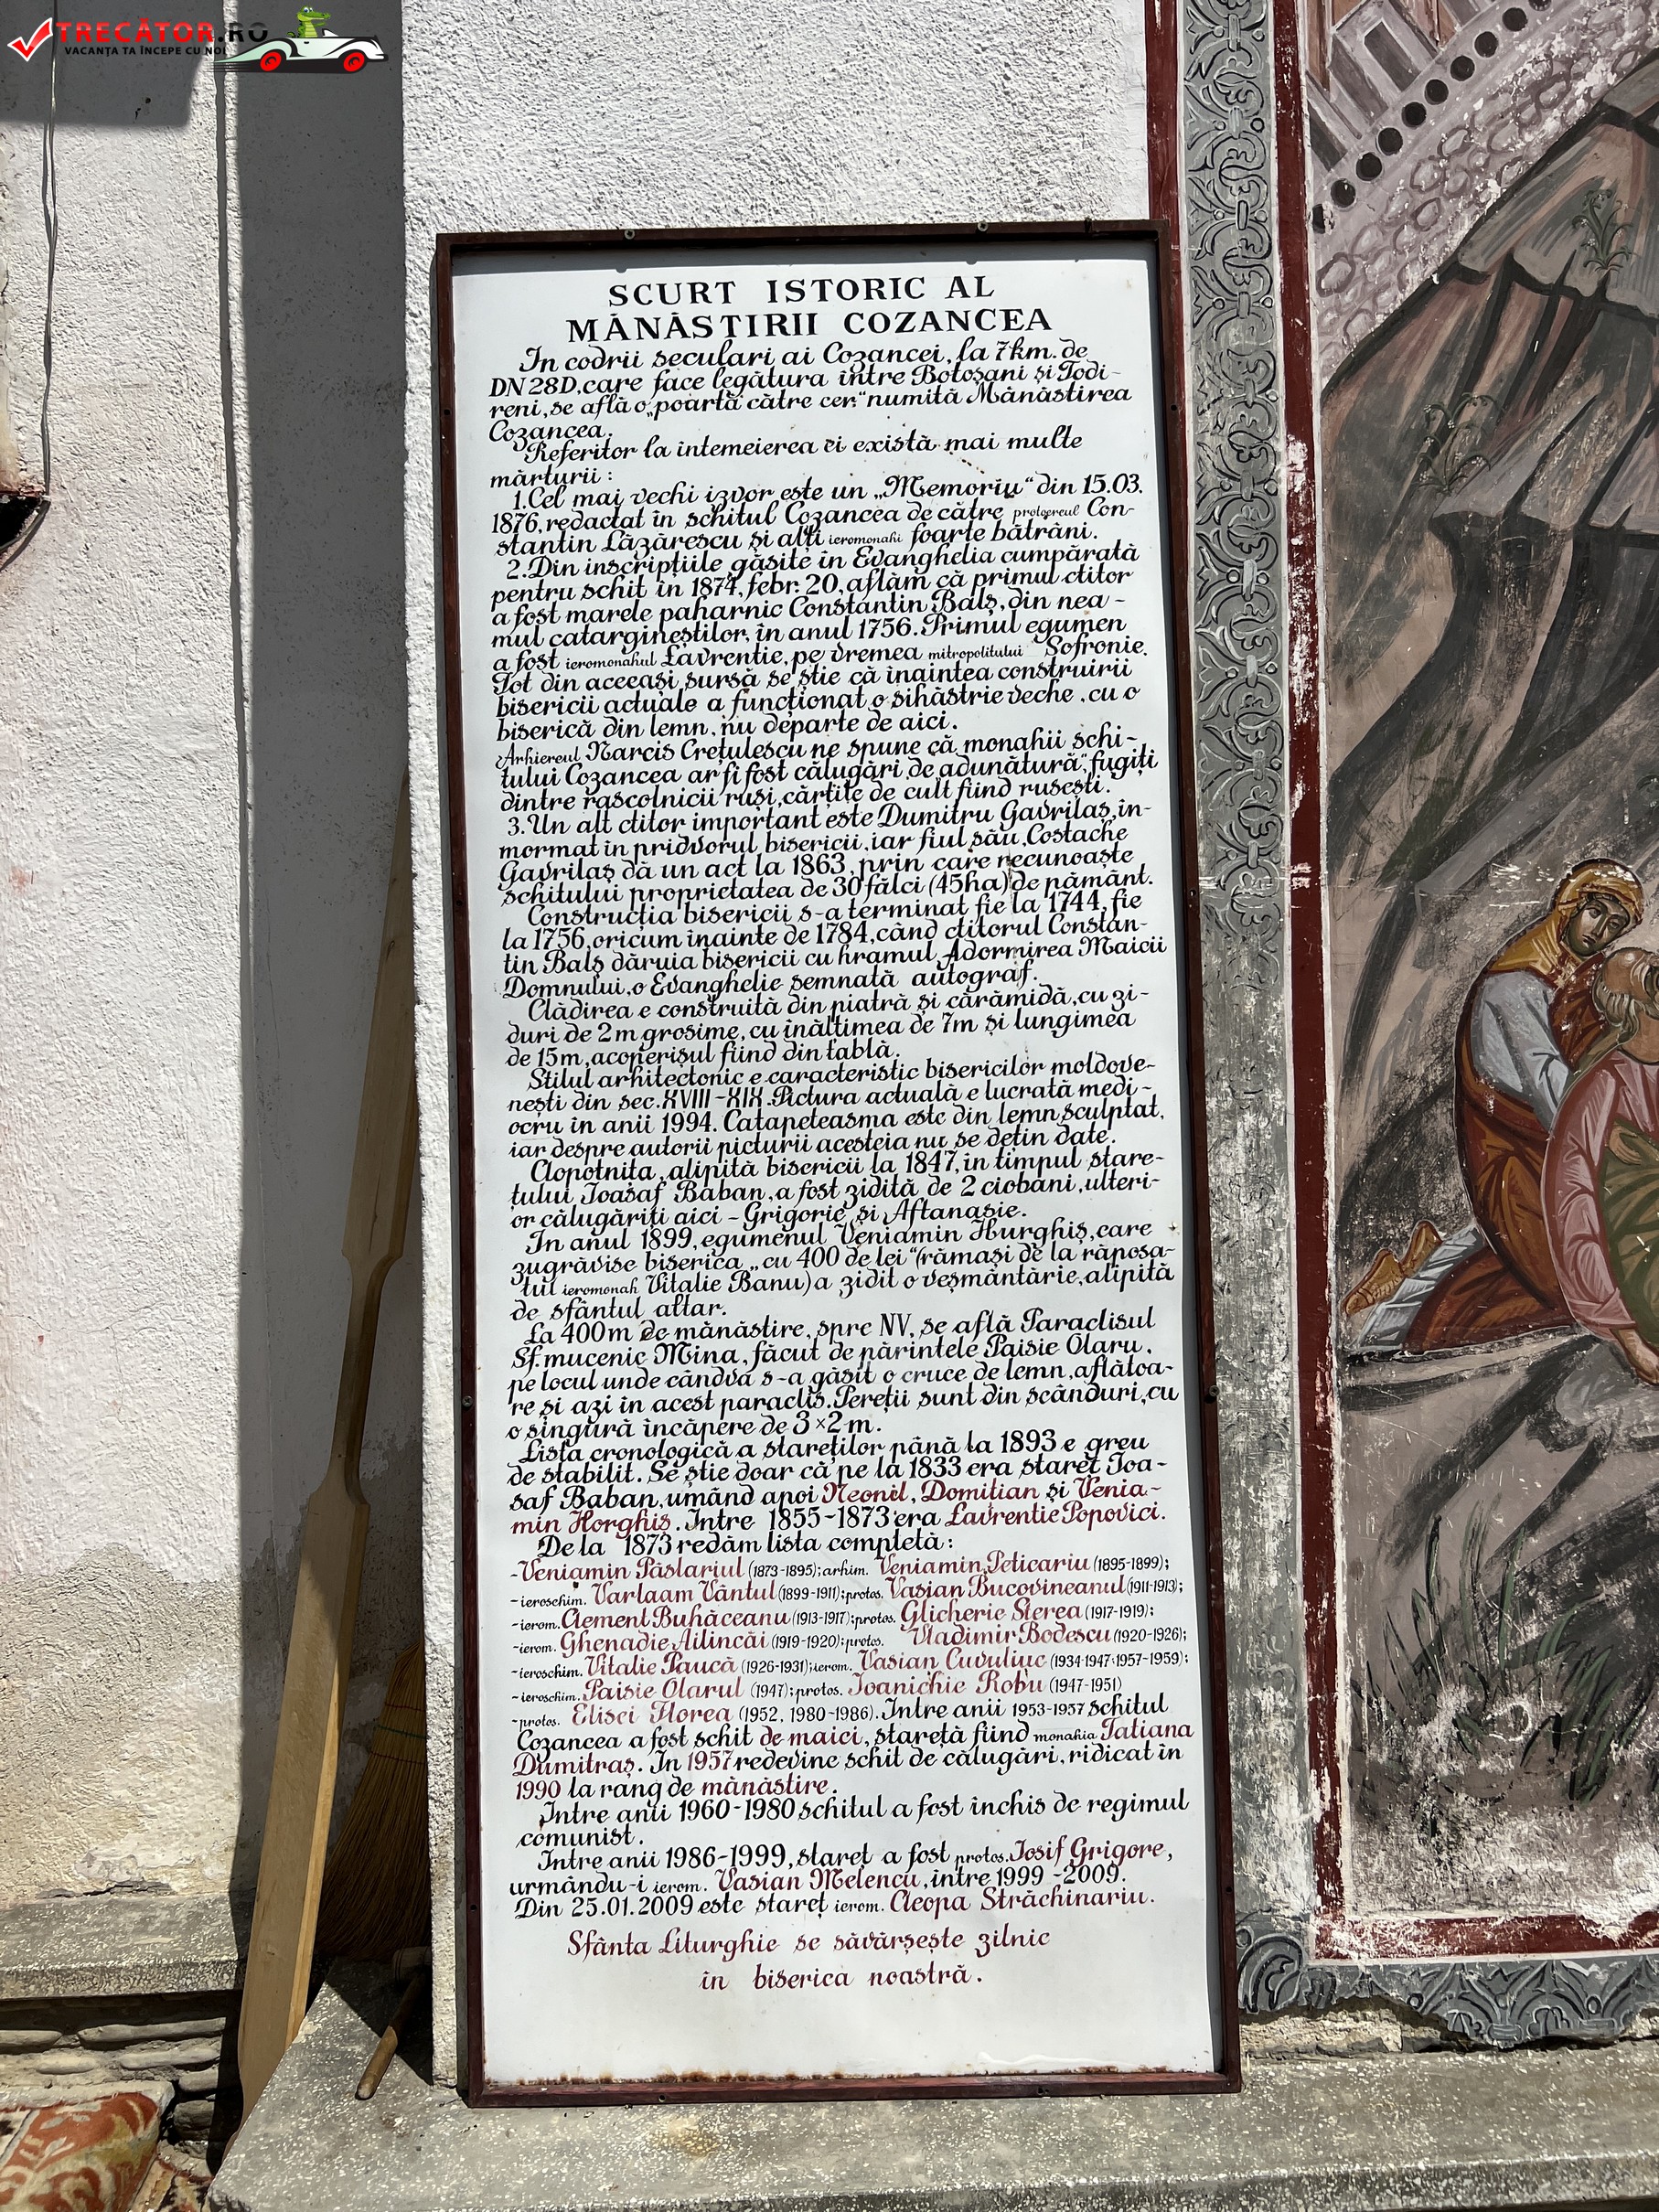 TRECĂTOR.RO
VACANȚA TA ÎNCEPE CU NOI
SCURT ISTORIC AL
MĂNĂSTIRII COZANCEA
In codrii seculari ai Cozancei, la 7km. de
DN 28D, care face legătura între Botoșani și Todi-
reni, se află o „poartă către cer" numită Mănăstirea
Cozancea.
Referitor la întemeierea ei există mai multe
mărturii :
1. Cel mai vechi izvor este un „Memoriu" din 15.03.
1876, redactat în schitul Cozancea de către protoereul Con-
stantin Lăzărescu și alți ieromonahi foarte bătrâni.
2. Din inscripțiile găsite în Evanghelia cumpărată
pentru schit în 1874, febr. 20, aflăm că primul ctitor
a fost marele paharnic Constantin Balș, din nea-
mul catargineștilor, în anul 1756. Primul egumen
a fost ieromonahul Lavrentie, pe vremea mitropolitului Sofronie.
Tot din aceeași sursă se știe că înaintea construirii
bisericii actuale a funcționat o sihăstrie veche, cu o
biserică din lemn, nu departe de aici.
Arhiereul Narcis Crețulescu ne spune că monahii schi-
tului Cozancea ar fi fost călugări „de adunătură", fugiți
dintre rascolnicii ruși, cărțile de cult fiind rusești.
3. Un alt ctitor important este Dumitru Gavrilaș, în-
mormat în pridvorul bisericii, iar fiul său, Costache
Gavrilaș dă un act la 1863, prin care recunoaște
schitului proprietatea de 30 fălci (45ha) de pământ.
Construcția bisericii s-a terminat fie la 1744, fie
la 1756, oricum înainte de 1784, când ctitorul Constan-
tin Balș dăruia bisericii cu hramul Adormirea Maicii
Domnului, o Evanghelie semnată autograf.
Clădirea e construită din piatră și cărămidă, cu zi-
duri de 2m grosime, cu înălțimea de 7m și lungimea
de 15m, acoperișul fiind din tablă.
Stilul arhitectonic e caracteristic bisericilor moldove-
nești din sec. XVIII-XIX. Pictura actuală e lucrată medi-
ocru în anii 1994. Catapeteasma este din lemn sculptat,
iar despre autorii picturii acesteia nu se dețin date.
Clopotnița, alipită bisericii la 1847, în timpul stare-
țului Ioasaf Baban, a fost zidită de 2 ciobani, ulteri-
or călugăriți aici - Grigorie și Aftanasie.
In anul 1899, egumenul Veniamin Hurghiș, care
zugrăvise biserica „cu 400 de lei" (rămași de la răposa-
tul ieromonah Vitalie Banu) a zidit o veșmântărie, alipită
de sfântul altar.
La 400m de mănăstire, spre NV, se află Paraclisul
Sf. mucenic Mina, făcut de părintele Paisie Olaru,
pe locul unde cândva s-a găsit o cruce de lemn, aflătoa-
re și azi în acest paraclis. Pereții sunt din scânduri, cu
o singură încăpere de 3×2m.
Lista cronologică a stareților până la 1893 e greu
de stabilit. Se știe doar că pe la 1833 era stareț Ioa-
saf Baban, umând apoi Neonil, Domitian și Venia-
min Horghiș. Intre 1855-1873 era Lavrentie Popovici.
De la 1873 redăm lista completă :
-Veniamin Păslariul (1873-1895); arhim. Veniamin Peticariu (1895-1899);
-ieroschim. Varlaam Vântul (1899-1911); protos. Vasian Bucovineanul (1911-1913);
-ierom. Clement Buhăceanu (1913-1917); protos. Glicherie Sterea (1917-1919);
-ierom. Ghenadie Ailincăi (1919-1920); protos. Vladimir Bodescu (1920-1926);
-ieroschim. Vitalie Paucă (1926-1931); ierom. Vasian Cuvuliuc (1934-1947; 1957-1959);
-ieroschim. Paisie Olarul (1947); protos. Ioanichie Robu (1947-1951)
-protos. Elisei Florea (1952, 1980-1986). Intre anii 1953-1957 schitul
Cozancea a fost schit de maici, stareță fiind monahia Tatiana
Dumitraș. In 1957 redevine schit de călugări, ridicat în
1990 la rang de mănăstire.
Intre anii 1960-1980 schitul a fost închis de regimul
comunist.
Intre anii 1986-1999, stareț a fost protos. Iosif Grigore,
urmându-i ierom. Vasian Melencu, între 1999-2009.
Din 25.01.2009 este stareț ierom. Cleopa Străchinariu.
Sfânta Liturghie se săvârșește zilnic
în biserica noastră.